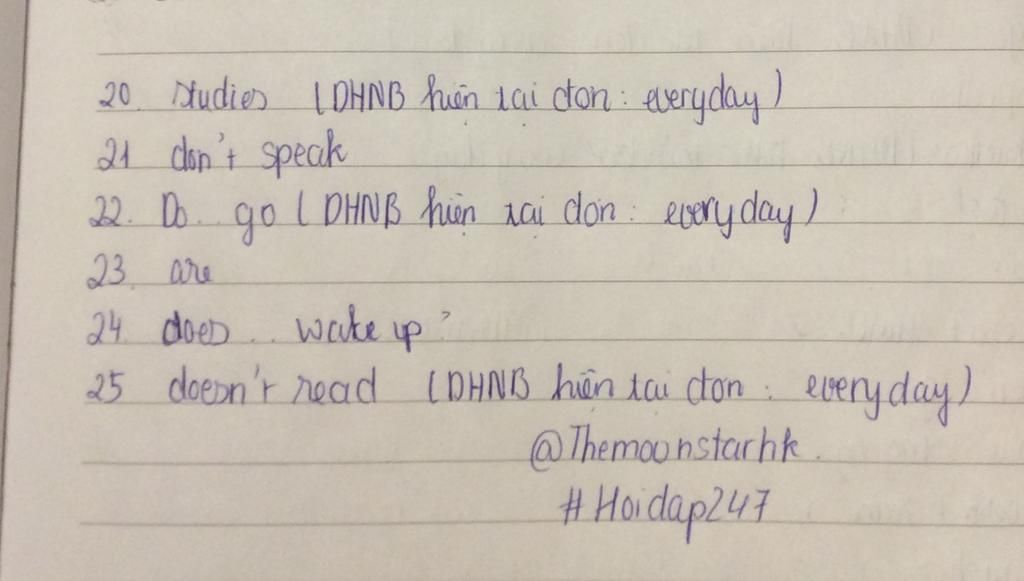 20. studies (DHNB hiện tại đơn : everyday)
21 don't speak
22. Do .. go (DHNB hiện tại đơn : everyday)
23. are
24. does .. wake up ?
25 doesn't read (DHNB hiện tại đơn : everyday)
@Themoonstarhk.
#Hoidap247